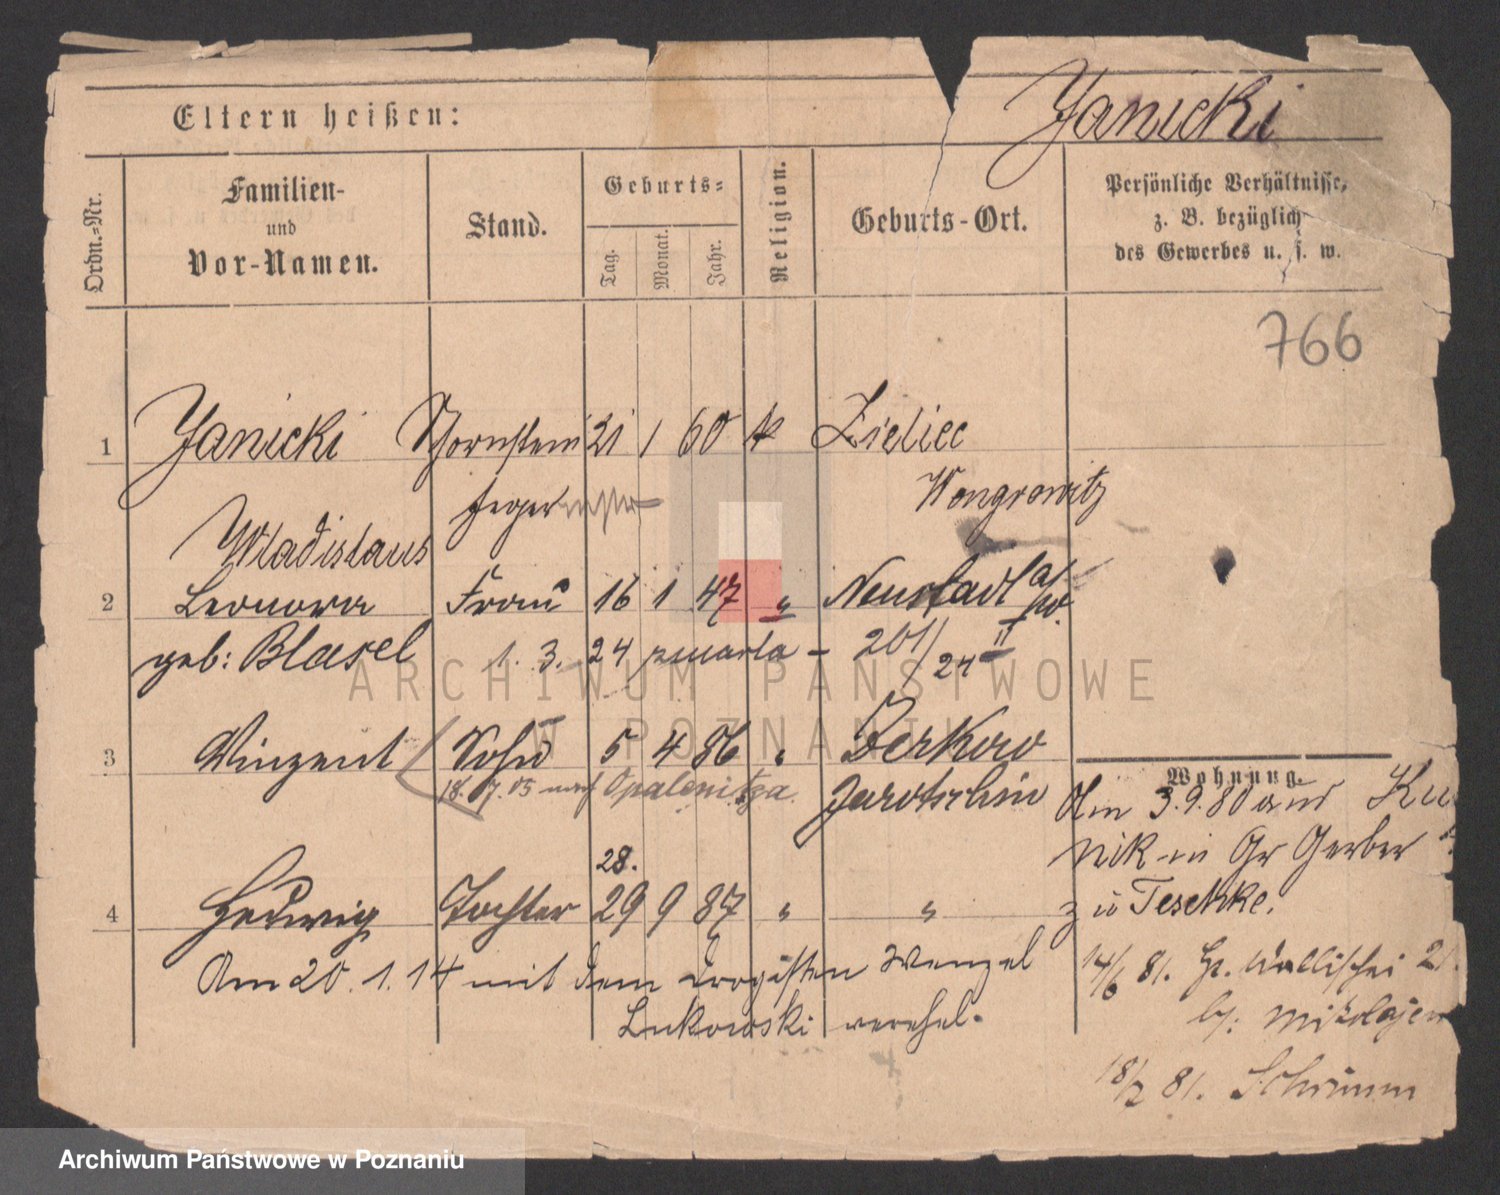 Eltern heißen: Janicki
Ordn.-Nr.
Familien-
und
Vor-Namen.
Stand.
Geburts-
Tag.
Monat.
Jahr.
Religion.
Geburts-Ort.
Persönliche Verhältnisse,
z. B. bezüglich
des Gewerbes u. s. w.
766
1 Janicki Schornstein 21 1 60 k Zieliec
feger Wongrowitz
Wladislaus
2 Leonora Frau 16 1 47 " Neustadt a/W.
geb: Blasel 1. 3. 24 zmarła - 201/24 II
3 Vinzent Sohn 5 4 86 " Berkow
18. 7. 05 nach Opalenitza Jarotschin
28.
4 Hedwig Tochter 29 9 87 " "
Am 20. 1. 14 mit dem Drogisten Wenzel
Lukowski verehel.
Wohnung.
Am 3. 9. 80 aus Ku
nik in Gr Gerber
zu Teschke.
14/6 81. Gr. Wallischei 21
by: Mikolajew
18/7 81. Schrimm
ARCHIWUM PAŃSTWOWE
W POZNANIU
Archiwum Państwowe w Poznaniu